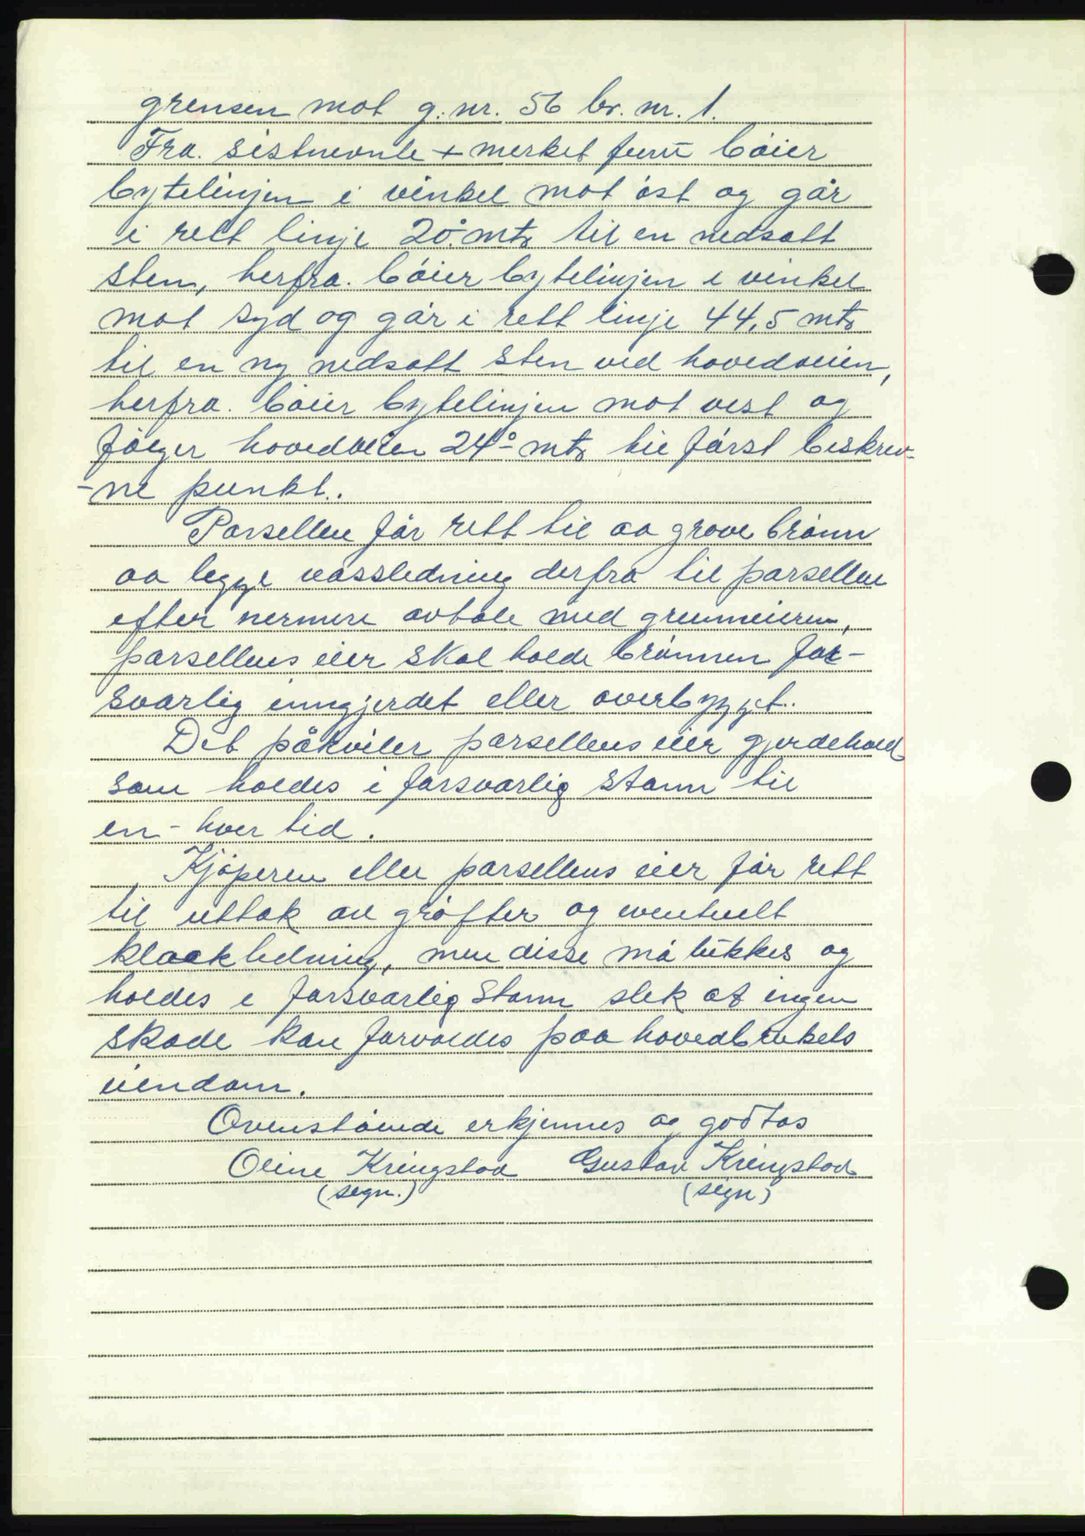 grensen mot g. nr. 56 br. nr. 1.
Fra. sistnevnte + merket furu bøier
bytelinjen i vinkel mot øst og går
i rett linje 20.º mtr til en nedsatt
sten, herfra. bøier bytelinjen i vinkel
mot syd og går i rett linje 44,5 mtr
til en ny nedsatt sten ved hovedveien,
herfra. bøier bytelinjen mot vest og
følger hovedveien 24º mtr til først beskrev-
-ne punkt..
Parsellen får rett til aa grave brønn
aa legge vassledning derfra til parsellen
efter nermere avtale med grunneieren,
parsellens eier skal holde brønnen for-
svarlig inngjerdet eller overbygget..
Det påkviler parsellens eier gjerdehold
som holdes i forsvarlig stann til
en-hver tid.
Kjøperen eller parsellens eier får rett
til uttak av grøfter og eventuelt
kloakkledning, men disse må lukkes og
holdes i forsvarlig stann slik at ingen
skade kan forvoldes paa hovedbrukets
eiendom.
Ovenstående erkjennes og godtas
Oline Kringstad Gustav Kringstad
(sign.) (sign)